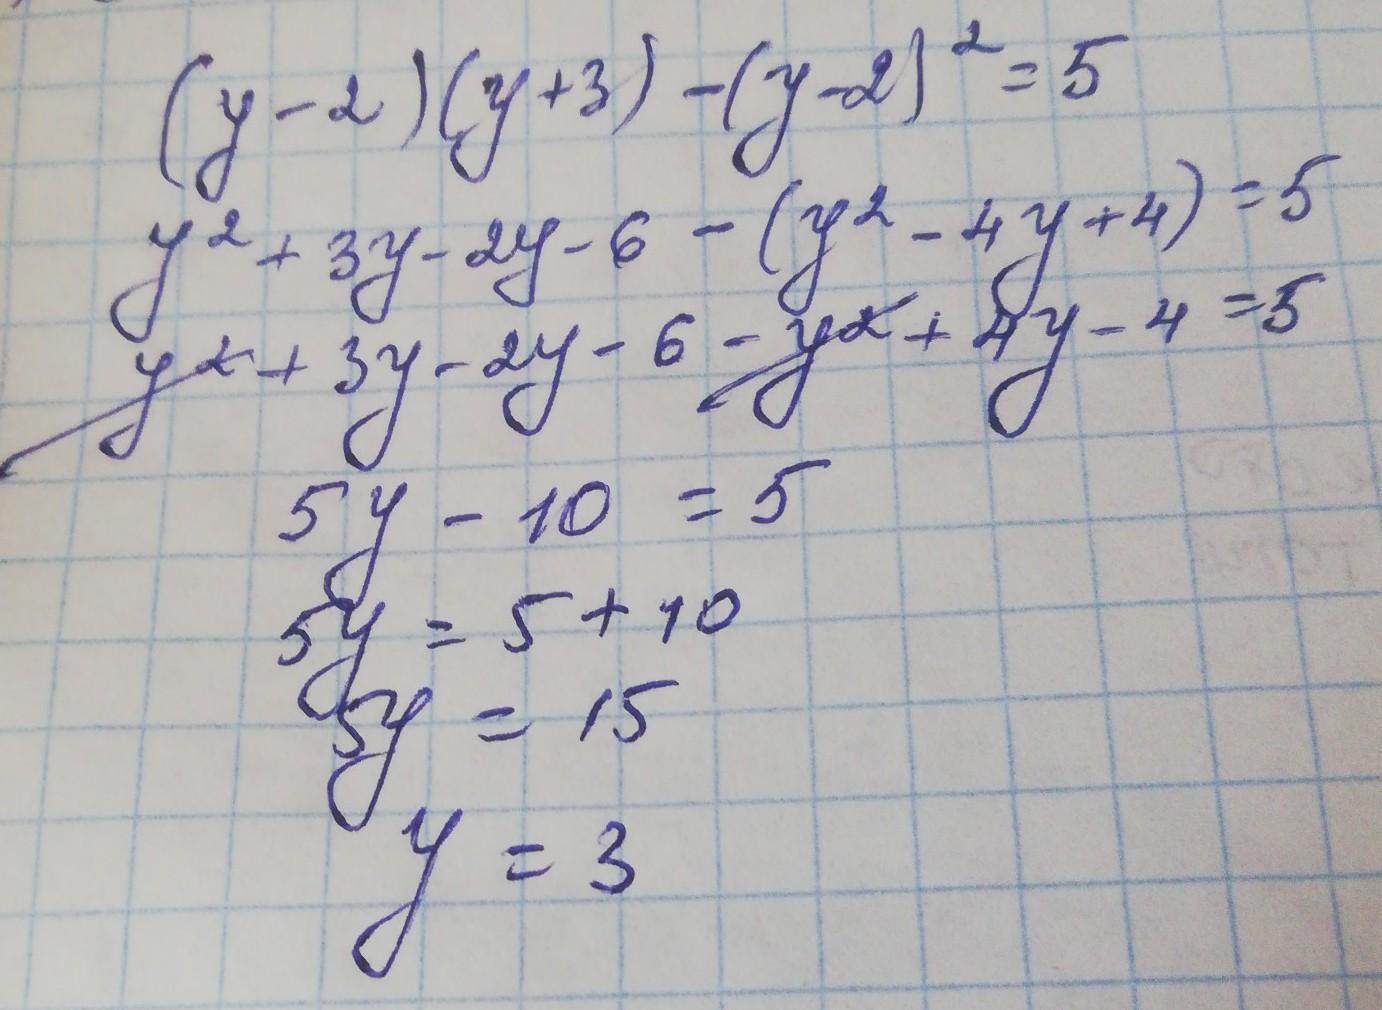 (y-2)(y+3)-(y-2)²=5
y²+3y-2y-6-(y²-4y+4)=5
y²+3y-2y-6-y²+4y-4=5
5y-10=5
5y=5+10
5y=15
y=3